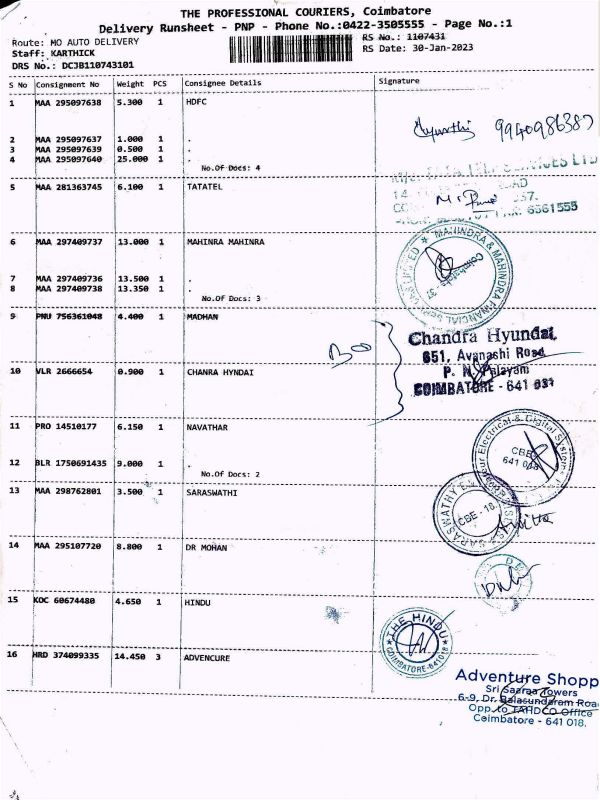 THE PROFESSIONAL COURIERS, Coimbatore
Delivery Runsheet - PNP - Phone No.:0422-3505555 - Page No.:1
Route: MO AUTO DELIVERY
RS No.: 1107431
Staff: KARTHICK
RS Date: 30-Jan-2023
DRS No.: DCJB110743101
S No Consignment No Weight PCS Consignee Details Signature
1 MAA 295097638 5.300 1 HDFC
9940986387
2 MAA 295097637 1.000 1 .
3 MAA 295097639 0.500 1 .
4 MAA 295097640 25.000 1 .
No.Of Docs: 4
5 MAA 281363745 6.100 1 TATATEL
6561555
6 MAA 297409737 13.000 1 MAHINRA MAHINRA
MAHINDRA & MAHINDRA FINANCIAL
Coimbatore
7 MAA 297409736 13.500 1 .
8 MAA 297409738 13.350 1 .
No.Of Docs: 3
9 PNU 756361048 4.400 1 MADHAN
Chandra Hyundai,
651, Avanashi Road
P. N. Palayam
COIMBATORE - 641 037
10 VLR 2666654 0.900 1 CHANRA HYNDAI
11 PRO 14510177 6.150 1 NAVATHAR
Electrical & Digital Systems
CBE
641 018
12 BLR 1750691435 9.000 1 .
No.Of Docs: 2
13 MAA 298762801 3.500 1 SARASWATHI
SARASWATHY
CBE - 18
14 MAA 295107720 8.800 1 DR MOHAN
15 KOC 60674480 4.650 1 HINDU
THE HINDU
COIMBATORE-641018
16 HRD 374099335 14.450 3 ADVENCURE
Adventure Shopp
Sri Saaraa Towers
6-9, Dr. Balasundaram Road
Opp. to TAHDCO Office
Coimbatore - 641 018.